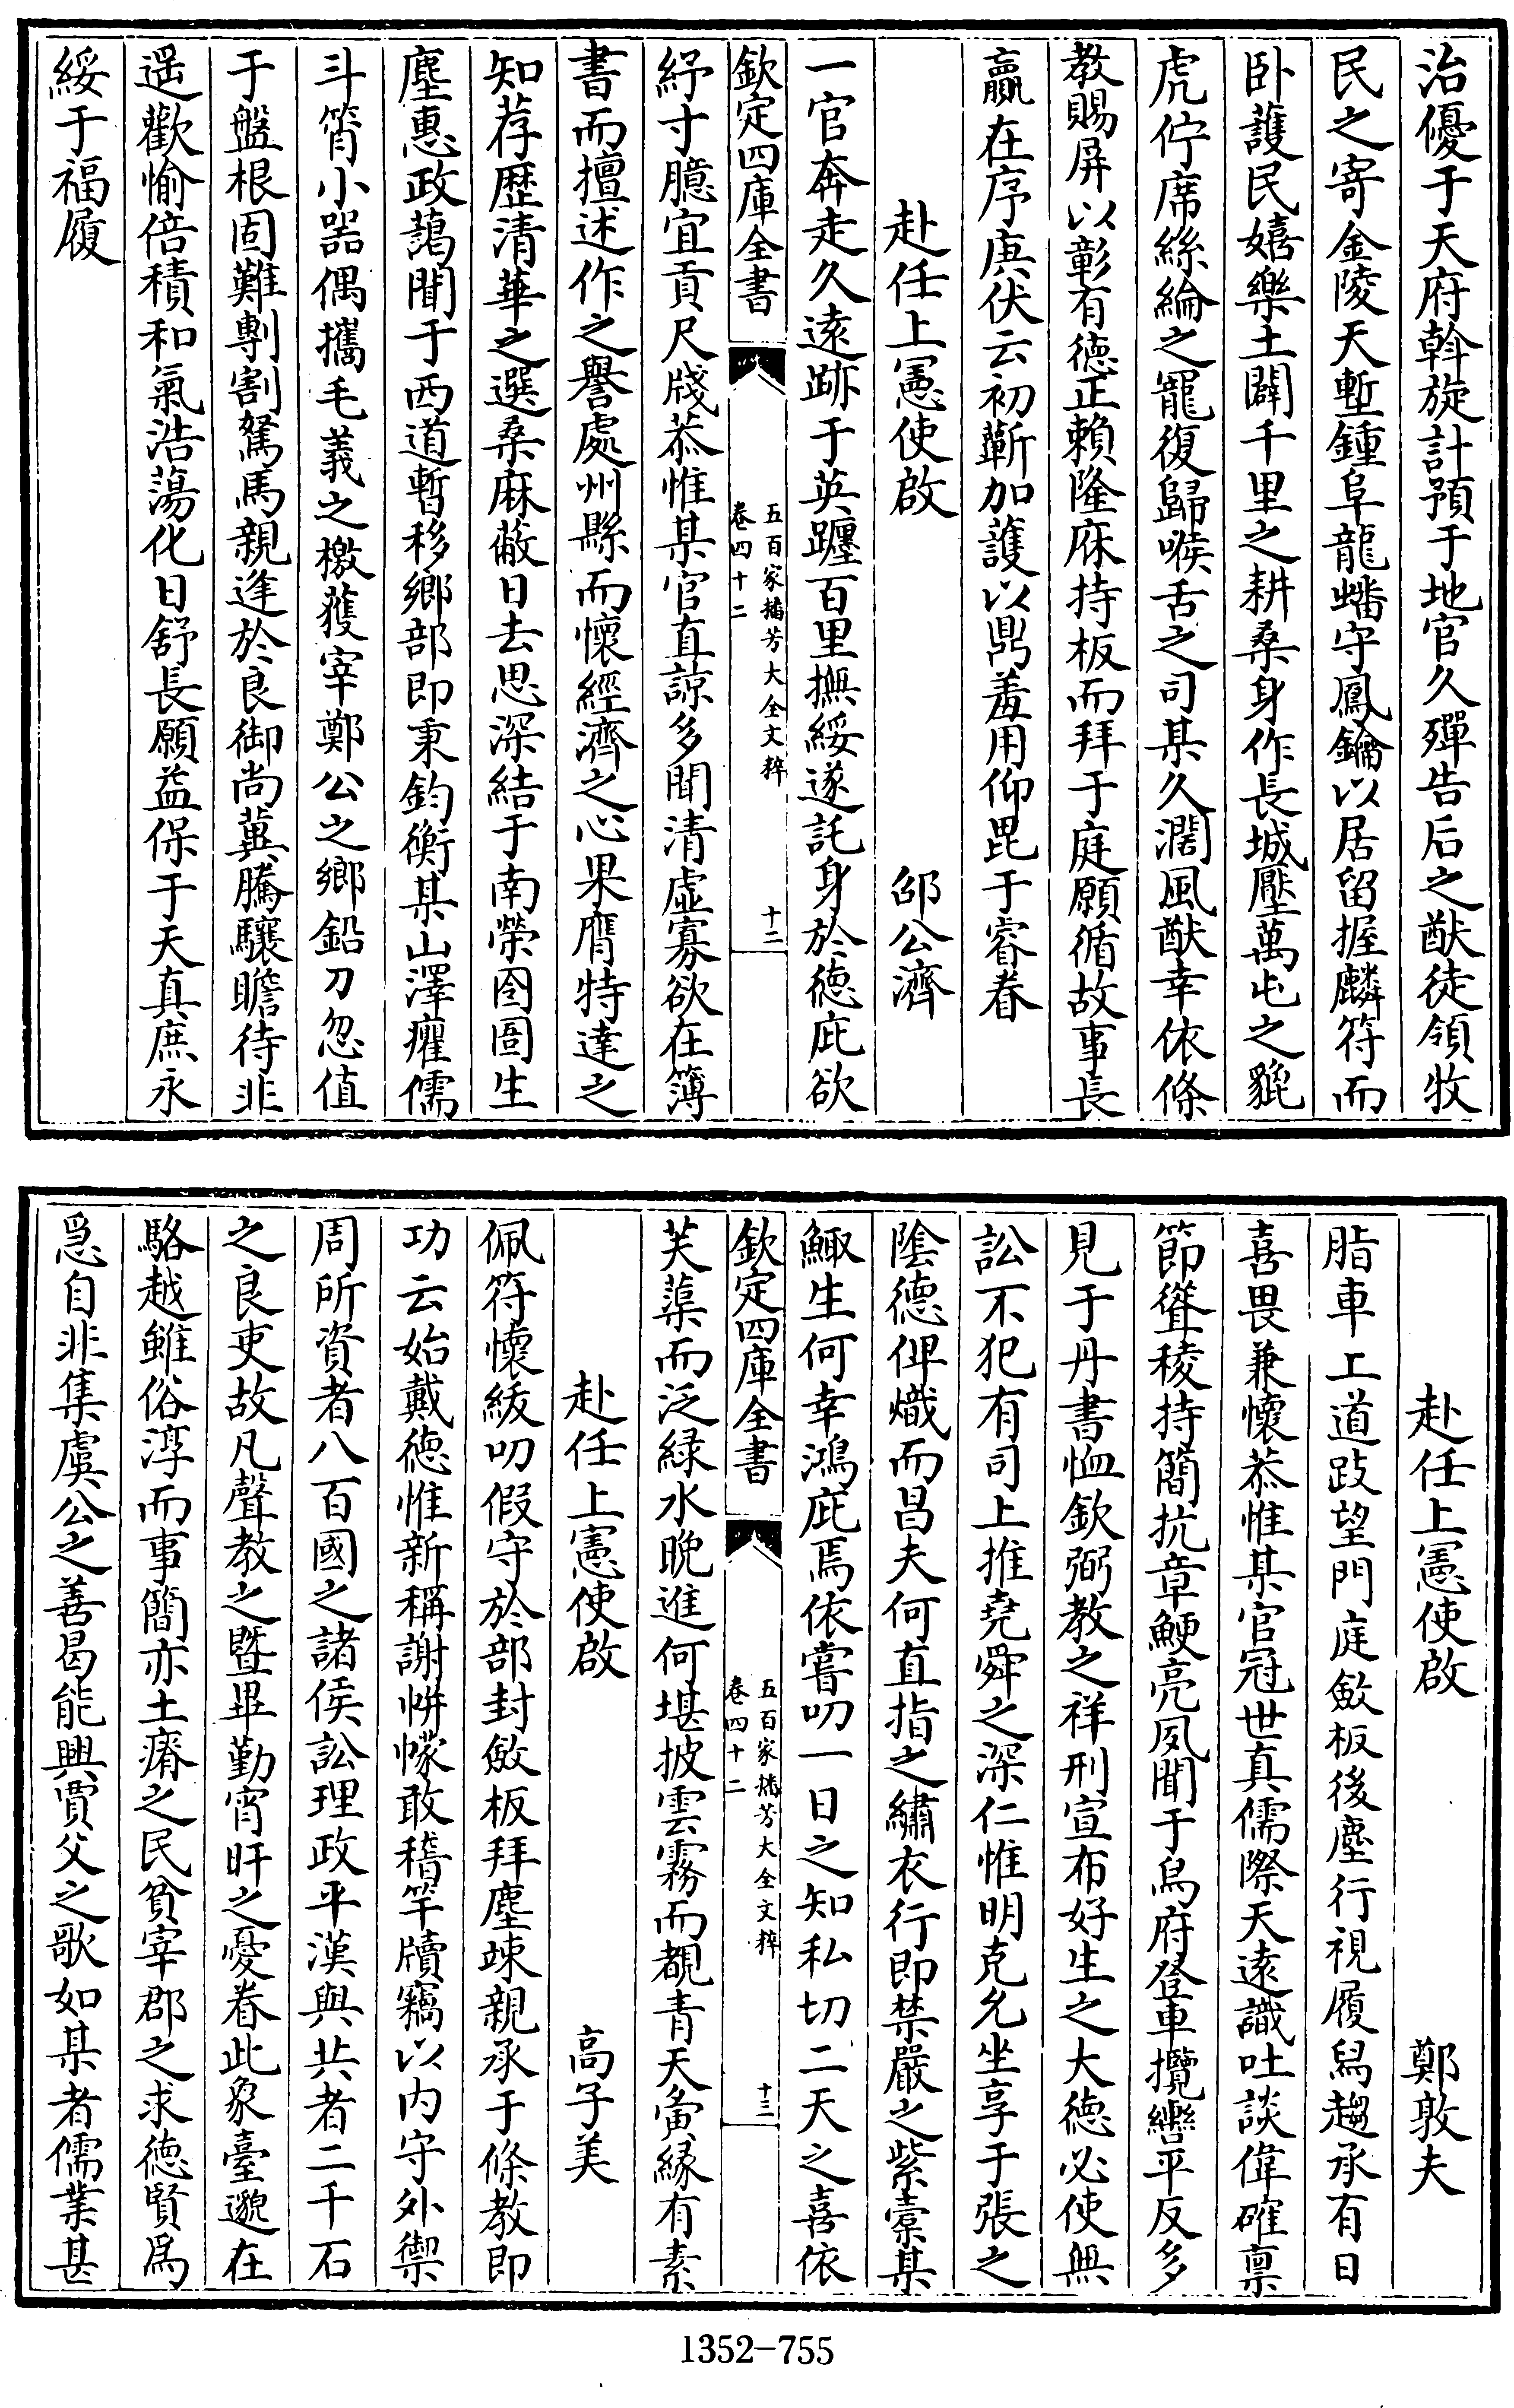 治優于天府斡旋計預于地官久殫告后之猷徒領牧
民之寄金陵天塹鍾阜龍蟠守鳳鑰以居留握麟符而
卧護民嬉樂土闢千里之耕桑身作長城壓萬屯之貔
虎佇席絲綸之寵復歸喉舌之司某久濶風猷幸依條
教賜屏以彰有德正賴隆庥持板而拜于庭願循故事長
贏在序庚伏云初蘄加護以鼎羞用仰毘于睿眷
赴任上憲使啟 邵公濟
一官奔走久逺跡于英躔百里撫綏遂託身於徳庇欲
欽定四庫全書
五百家播芳大全文粹
卷四十二
十二
紓寸臆宜貢尺牋恭惟某官直諒多聞清虛寡欲在簿
書而擅述作之譽處州縣而懷經濟之心果膺特達之
知荐歴清華之選桑麻蔽日去思深結于南榮囹圄生
塵惠政藹聞于西道暫移鄉部即秉鈞衡某山澤癯儒
斗筲小器偶攜毛義之檄獲宰鄭公之鄉鉛刀忽值
于盤根固難剸割駑馬親逢於良御尚冀騰驤瞻待非
遥歡愉倍積和氣浩蕩化日舒長願益保于天真庶永
綏于福履
赴任上憲使啟 鄭敦夫
脂車上道跂望門庭斂板後塵行視履舄趨承有日
喜畏兼懷恭惟某官冠世真儒際天逺識吐談偉確禀
節聳稜持簡抗章鯁亮夙聞于烏府登車攬轡平反多
見于丹書恤欽弼教之祥刑宣布好生之大徳必使無
訟不犯有司上推堯舜之深仁惟明克允坐享于張之
陰德俾熾而昌夫何直指之繡衣行即禁嚴之紫橐某
鯫生何幸鴻庇焉依嘗叨一日之知私切二天之喜依
欽定四庫全書
五百家播芳大全文粹
卷四十二
十三
芙蕖而泛緑水晚進何堪披雲霧而覩青天夤緣有素
赴任上憲使啟 高子美
佩符懷紱叨假守於部封斂板拜塵竦親承于條教即
功云始戴徳惟新稱謝帡幪敢稽竿牘竊以内守外禦
周所資者八百國之諸侯訟理政平漢與共者二千石
之良吏故凡聲教之暨畢勤宵旰之憂眷此象臺邈在
駱越雖俗淳而事簡亦土瘠之民貧宰郡之求德賢爲
急自非集虞公之善曷能興賈父之歌如某者儒業甚
1352-755